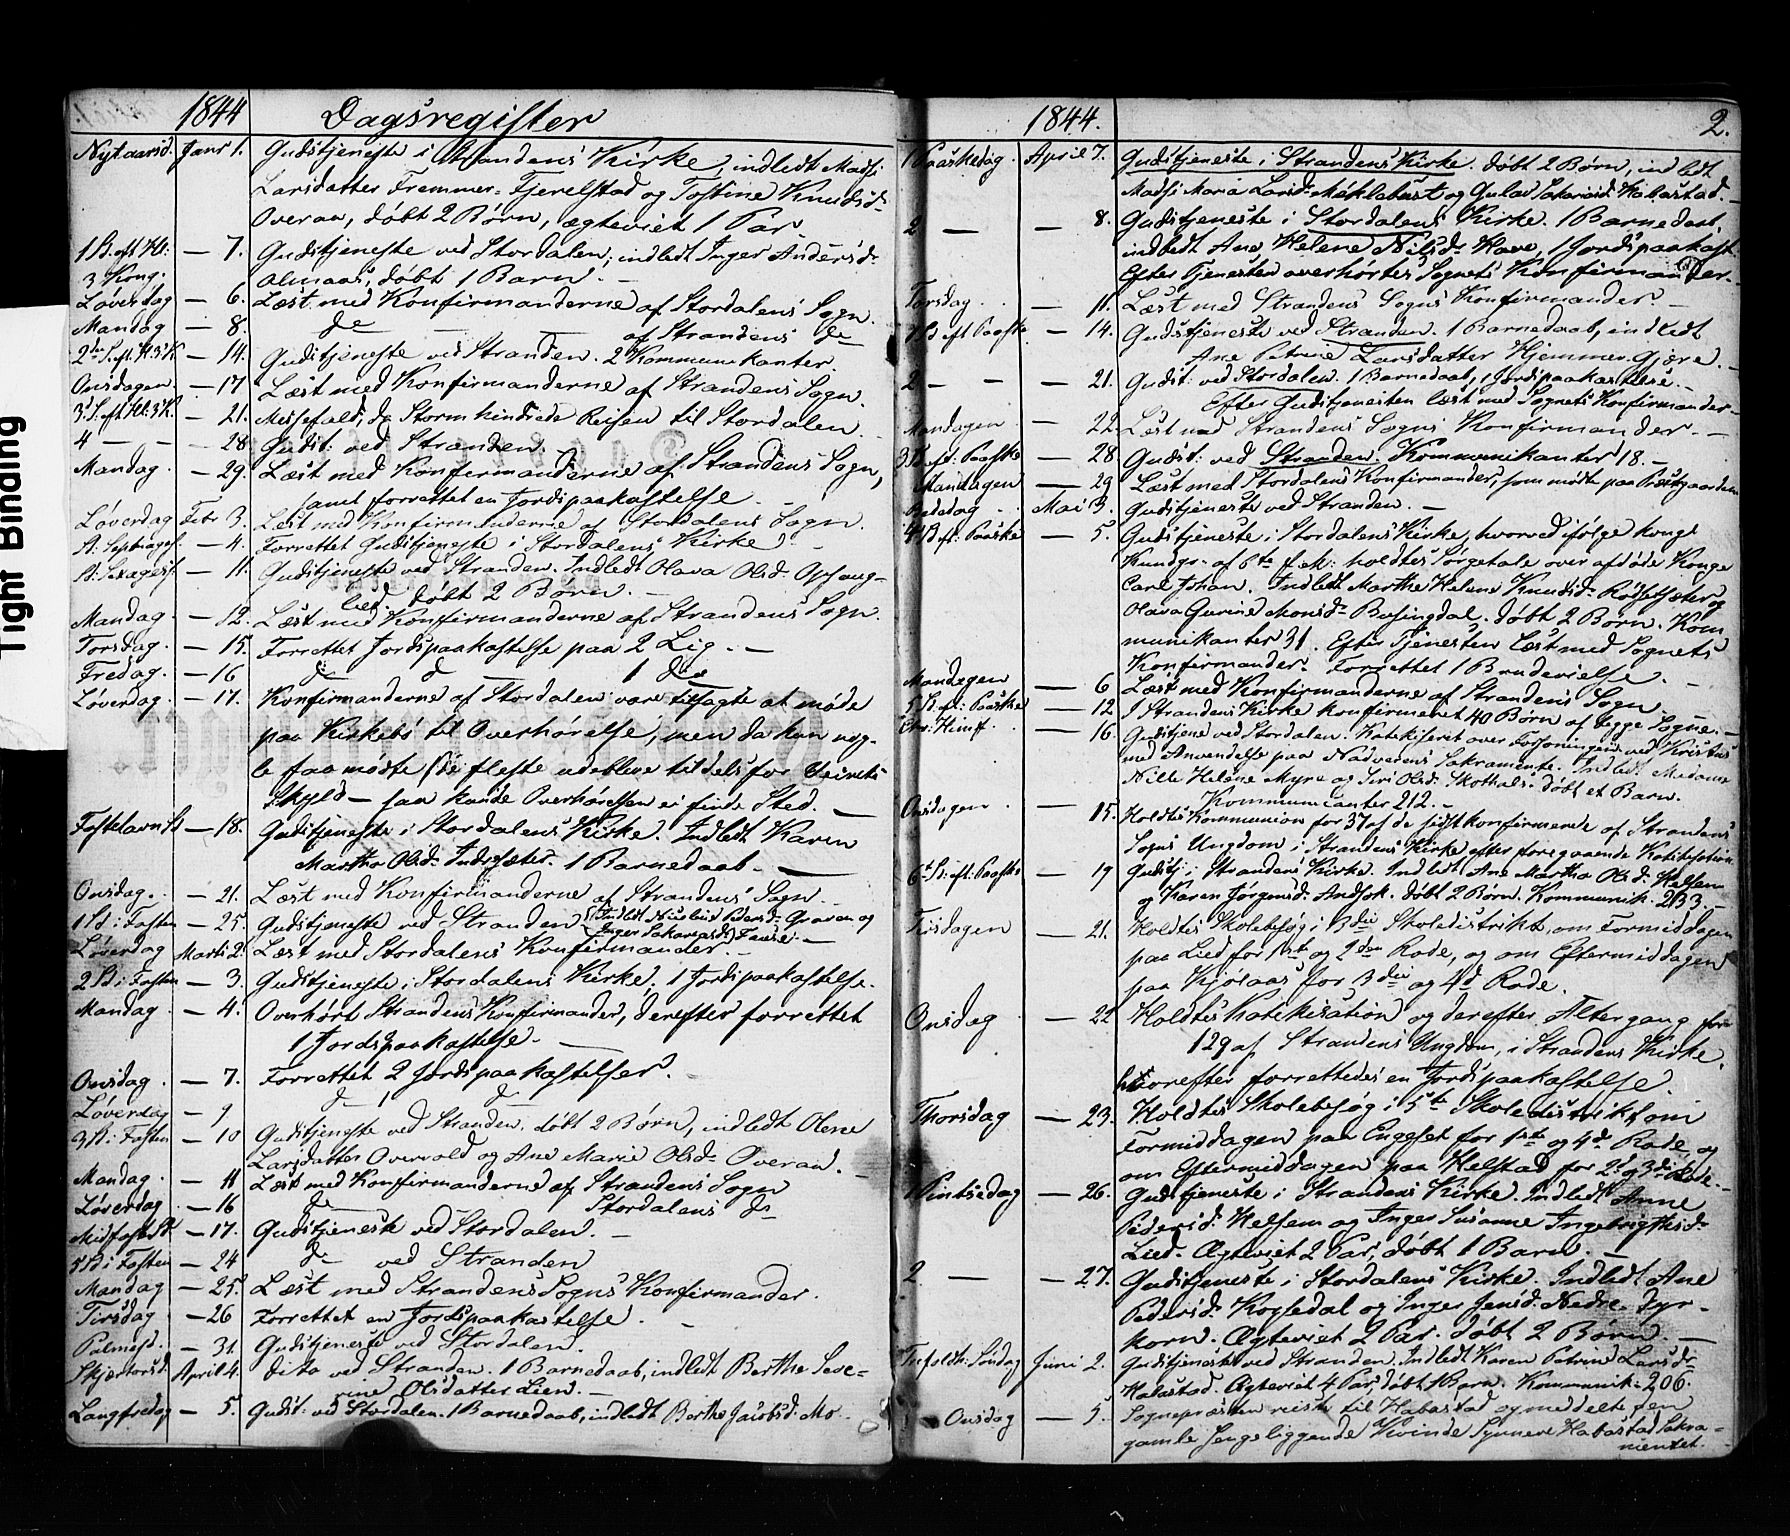 Tight Binding
1844 Dagsregister
Nytaarsd. Janr 1. Gudstjeneste i Strandens Kirke, indledt Madsi
Larsdatter Fremmer-Fjerelstad og Tostine Knudsd.
Overaa, døbt 2 Børn, ægteviet 1 Par.
— 7. Gudstjeneste ved Stordalen, indledt Inger Andersd.
3 Kong. Almaas, døbt 1 Barn. —
Løverdag — 6. Læst med Konfirmanderne af Stordalens Sogn.
Mandag — 8. do — — af Strandens do
— 14. Gudstjeneste ved Stranden. 2 Kommunikanter.
Onsdagen — 17. Læst med Konfirmanderne af Strandens Sogn.
— 21. Messefald, da Storm hindrede Reisen til Stordalen.
4 — — — 28 Gudst: ved Stranden.
Mandag. — 29. Læst med Konfirmanderne af Strandens Sogn,
samt forrettet en Jordspaakastelse. —
Løverdag Febr 3. Læst med Konfirmanderne af Stordalens Sogn.
— 4. Forrettet Gudstjeneste i Stordalens Kirke. —
— 11. Gudstjeneste ved Stranden. Indledt Olava Olsd. Opshaug-
lied. døbt 2 Børn. —
Mandag. — 12. Læst med Konfirmanderne af Strandens Sogn.
Torsdag. — 15. Forrettet Jordspaakastelse paa 2 Lig. —
Fredag. — 16 do do 1 do
Løverdag. — 17. Konfirmanderne af Stordalen vare tilsagte at møde
paa Kirkebø til Overhørelse, men da kun nog-
le faa mødte (de fleste udebleve tildels for Veirets
Skyld — saa kunde Overhørelsen ei finde Sted. —
Fastelavns — 18. Gudstjeneste i Stordalens Kirke. Indledt Karen
Martha Olsd. Indresæter. 1 Barnedaab. —
Onsdag. — 21. Læst med Konfirmanderne af Strandens Sogn.
1 S i Fasten — 25. Gudstjeneste ved Stranden (Indledt Persd. Graven og
Inger Sakariasd.
Løverdag Marti 2. Læst med Stordalens Konfirmander. —
2 S i Fasten — 3. Gudstjeneste i Stordalens Kirke. 1 Jordspaakastelse.
Mandag — 4. Overhørt Strandens Konfirmander, derefter forrettet
1 Jordspaakastelse. —
Onsdag — 7. Forrettet 2 Jordspaakastelser.
Løverdag — 9 do do
3 S i Fasten — 10 Gudstjeneste ved Stranden. døbt 2 Børn, indledt Olene
Larsdatter Overvold og Ane Marie Olsd. Overaa.
Mandag. — 11 Læst med Konfirmanderne af Strandens Sogn
Løverdag — 16 do Stordalens do
Midfaste S — 17. Gudstjeneste ved Stordalen. —
5 S i Fasten — 24 do ved Stranden
Mandag — 25. Læst med Strandens Sogns Konfirmander.
Tirsdag — 26 Forrettet en Jordspaakastelse. —
Palmes. — 31. Gudstjeneste ved Stordalen.
Skjærtorsd. April 4. dito ved Stranden. 1 Barnedaab, indledt Berthe Seve-
rine Olsdatter Lien. —
Langfredag — 5. Gudst: ved Stordalen. 1 Barnedaab, indledt Berthe Jacobsd. Mo.
1844. 2.
1 Paaskedag. April 7. Gudstjeneste i Strandens Kirke. døbt 2 Børn, indledt
Madsi Maria Larsd. Møklebust og Gulav Sakariasd. Habostad. —
2 — — 8. Gudstjeneste i Stordalens Kirke. 1 Barnedaab,
indledt Ane Helene Nilsd. Hove, 1 Jordspaakast.
Efter Tjenesten overhørtes Sognets Konfirmander. —
Torsdag. — 11. Læst med Strandens Sogns Konfirmander —
1 S eft Paaske — 14. Gudstjeneste ved Stranden. 1 Barnedaab, indledt
Ane Petrine Larsdatter Hjemmer-Gjære. —
2 — — — 21. Gudst: ved Stordalen. 1 Barnedaab, 1 Jordspaakastelse. —
Efter Gudstjenesten læst med Sognets Konfirmander. —
Mandagen — 22. Læst med Strandens Sogns Konfirmander. —
3 S. eft. Paaske — 28 Gudst: ved Stranden. Kommunikanter 18. —
Mandagen — 29 Læst med Stordalens Konfirmander, som mødte paa Præstgaarden
Bededag. Mai 3. Gudstjeneste ved Stranden. —
4 S eft: Paaske — 5. Gudstjeneste i Stordalens Kirke, hvorved ifølge kongl
Kundgr. af 6te f. M. holdtes Sørgetale over afdøde Konge
Carl Johan. Indledt Marthe Helene Knudsd. Rødsetsæter og
Olava Gurine Monsd. Busingdal. døbt 2 Børn. Kom-
munikanter 31. Efter Tjenesten læst med Sognets
Konfirmander. Forrettet 1 Brudevielse. —
Mandagen — 6 Læst med Konfirmanderne af Strandens Sogn. —
5 S. eft: Paaske — 12. I Strandens Kirke konfirmeret 40 Børn af begge Sogne. —
Chr: Himf. — 16. Gudstjene ved Stordalen. Katekiseret over Forsoningen ved Kristus
med Anvendelse paa Nadverens Sakramente. Indledt Madame
Nille Helene Myre og Siri Olsd. Skothals. døbt et Barn.
Kommunicanter 212. —
Onsdagen — 15. Holdtes Kommunion for 37 af de sidst konfirmerede af Strandens
Sogns Ungdom i Strandens Kirke efter foregaaende Katekisation
6te S. eft. Paaske — 19 Gudstj i Strandens Kirke. Indledt Ane Martha Olsd. Helsem
og Karen Jørgensd. Andsok. døbt 2 Børn. Kommunik. 233. —
Tirsdagen — 21. Holdtes Skolebesøg i 3die Skoledistrikt, om Formiddagen
paa Lied for 1ste og 2den Rode, og om Eftermiddagen
paa Kjølaas for 3die og 4de Rode.
Onsdag — 22 Holdtes Katekisation og derefter Altergang for
129 af Strandens Ungdom, i Strandens Kirke,
hvorefter forrettedes en Jordspaakastelse.
Thorsdag — 23. Holdtes Skolebesøg i 5te Skoledistrikt, om
Formiddagen paa Engeset for 1ste og 4de Rode, og
om Eftermiddagen paa Helstad for 2d og 3die Rode. —
1 Pintsedag — 26. Gudstjeneste i Strandens Kirke. Indledt Anne
Pedersd. Helsem og Inger Susanne Ingebrigtsd.
Lied. Ægteviet 2 Par, døbt 1 Barn. —
2. — — 27. Gudstjeneste i Stordalens Kirke. Indledt Ane
Pedersd. Kopsedal og Inger Jensd. Nedre-Dyr-
korn. Ægteviet 2 Par. døbt 2 Børn. —
Trefoldh. Søndag Juni 2. Gudstjeneste ved Stranden. Indledt Karen Petrine Larsd.
Habostad. Ægteviet 4 Par, døbt 1 Barn. Kommunik. 206.
Onsdag — 5. Sognepræsten reiste til Habostad og meddelte den
gamle sengeliggende Kvinde Synneve Habostad Sakra-
mentet.